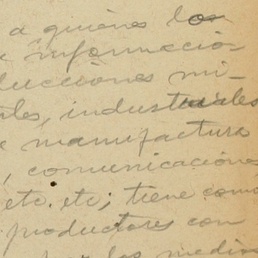 a quiénes los
información
ducciones mi-
ales, industriales
manufactura
, comunicaciones
etc. etc; tiene como
productores con
los medios